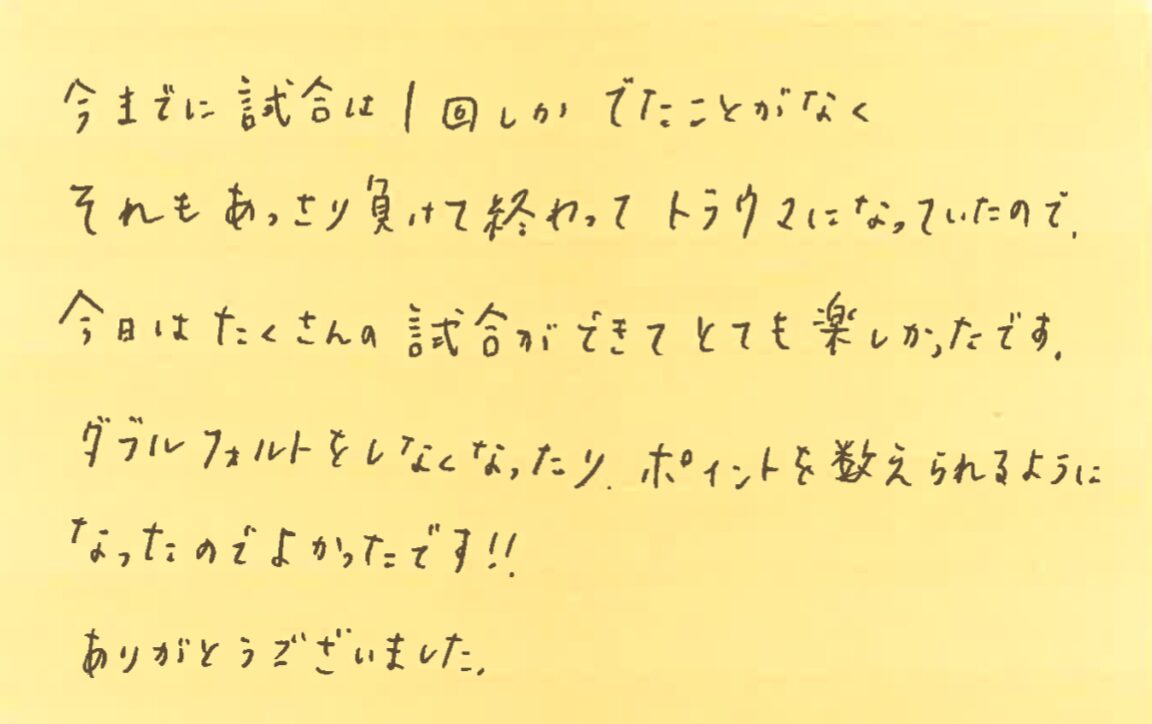 今までに試合は1回しかでたことがなく
それもあっさり負けて終わってトラウマになっていたので、
今日はたくさんの試合ができてとても楽しかったです。
ダブルフォルトをしなくなったり、ポイントを数えられるように
なったのでよかったです!!
ありがとうございました。